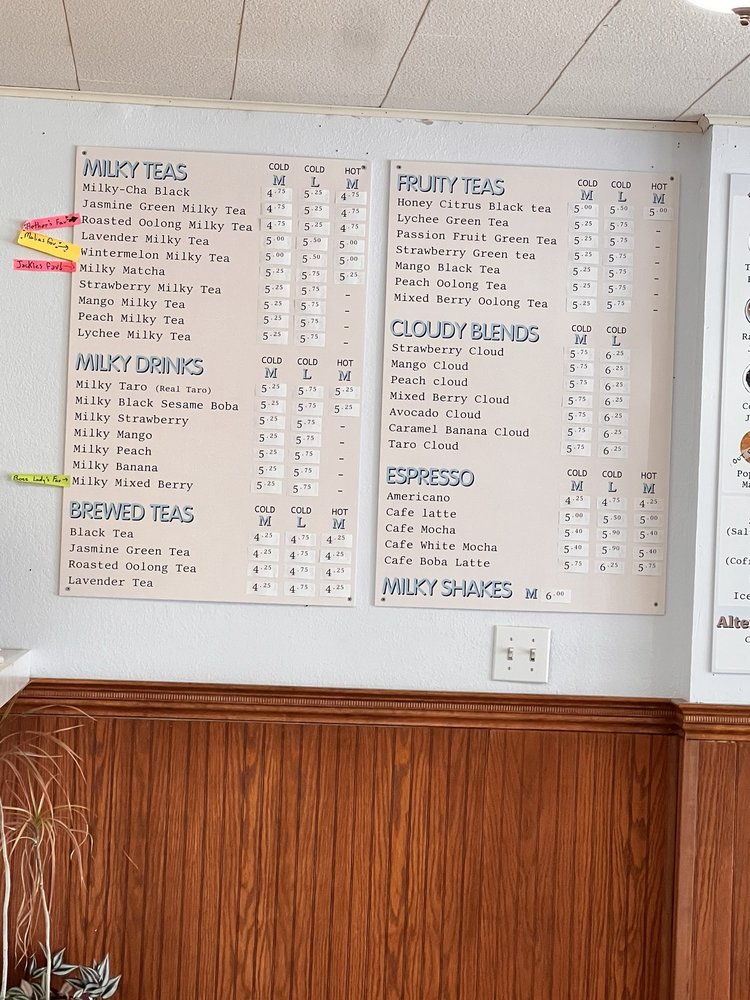 MILKY TEAS COLD M COLD L HOT M
Milky-Cha Black 4.75 5.25 4.75
Jasmine Green Milky Tea 4.75 5.25 4.75
Roasted Oolong Milky Tea 4.75 5.25 4.75
Lavender Milky Tea 5.00 5.50 5.00
Wintermelon Milky Tea 5.00 5.50 5.00
Jackies Fav!
Milky Matcha 5.25 5.75 5.25
Strawberry Milky Tea 5.25 5.75 -
Mango Milky Tea 5.25 5.75 -
Peach Milky Tea 5.25 5.75 -
Lychee Milky Tea 5.25 5.75 -
MILKY DRINKS COLD M COLD L HOT M
Milky Taro (Real Taro) 5.25 5.75 5.25
Milky Black Sesame Boba 5.25 5.75 5.25
Milky Strawberry 5.25 5.75 -
Milky Mango 5.25 5.75 -
Milky Peach 5.25 5.75 -
Milky Banana 5.25 5.75 -
Boss Lady's Fav
Milky Mixed Berry 5.25 5.75 -
BREWED TEAS COLD M COLD L HOT M
Black Tea 4.25 4.75 4.25
Jasmine Green Tea 4.25 4.75 4.25
Roasted Oolong Tea 4.25 4.75 4.25
Lavender Tea 4.25 4.75 4.25
FRUITY TEAS COLD M COLD L HOT M
Honey Citrus Black tea 5.00 5.50 5.00
Lychee Green Tea 5.25 5.75 -
Passion Fruit Green Tea 5.25 5.75 -
Strawberry Green tea 5.25 5.75 -
Mango Black Tea 5.25 5.75 -
Peach Oolong Tea 5.25 5.75 -
Mixed Berry Oolong Tea 5.25 5.75 -
CLOUDY BLENDS COLD M COLD L
Strawberry Cloud 5.75 6.25
Mango Cloud 5.75 6.25
Peach cloud 5.75 6.25
Mixed Berry Cloud 5.75 6.25
Avocado Cloud 5.75 6.25
Caramel Banana Cloud 5.75 6.25
Taro Cloud 5.75 6.25
ESPRESSO COLD M COLD L HOT M
Americano 4.25 4.75 4.25
Cafe latte 5.00 5.50 5.00
Cafe Mocha 5.40 5.90 5.40
Cafe White Mocha 5.40 5.90 5.40
Cafe Boba Latte 5.75 6.25 5.75
MILKY SHAKES M 6.00